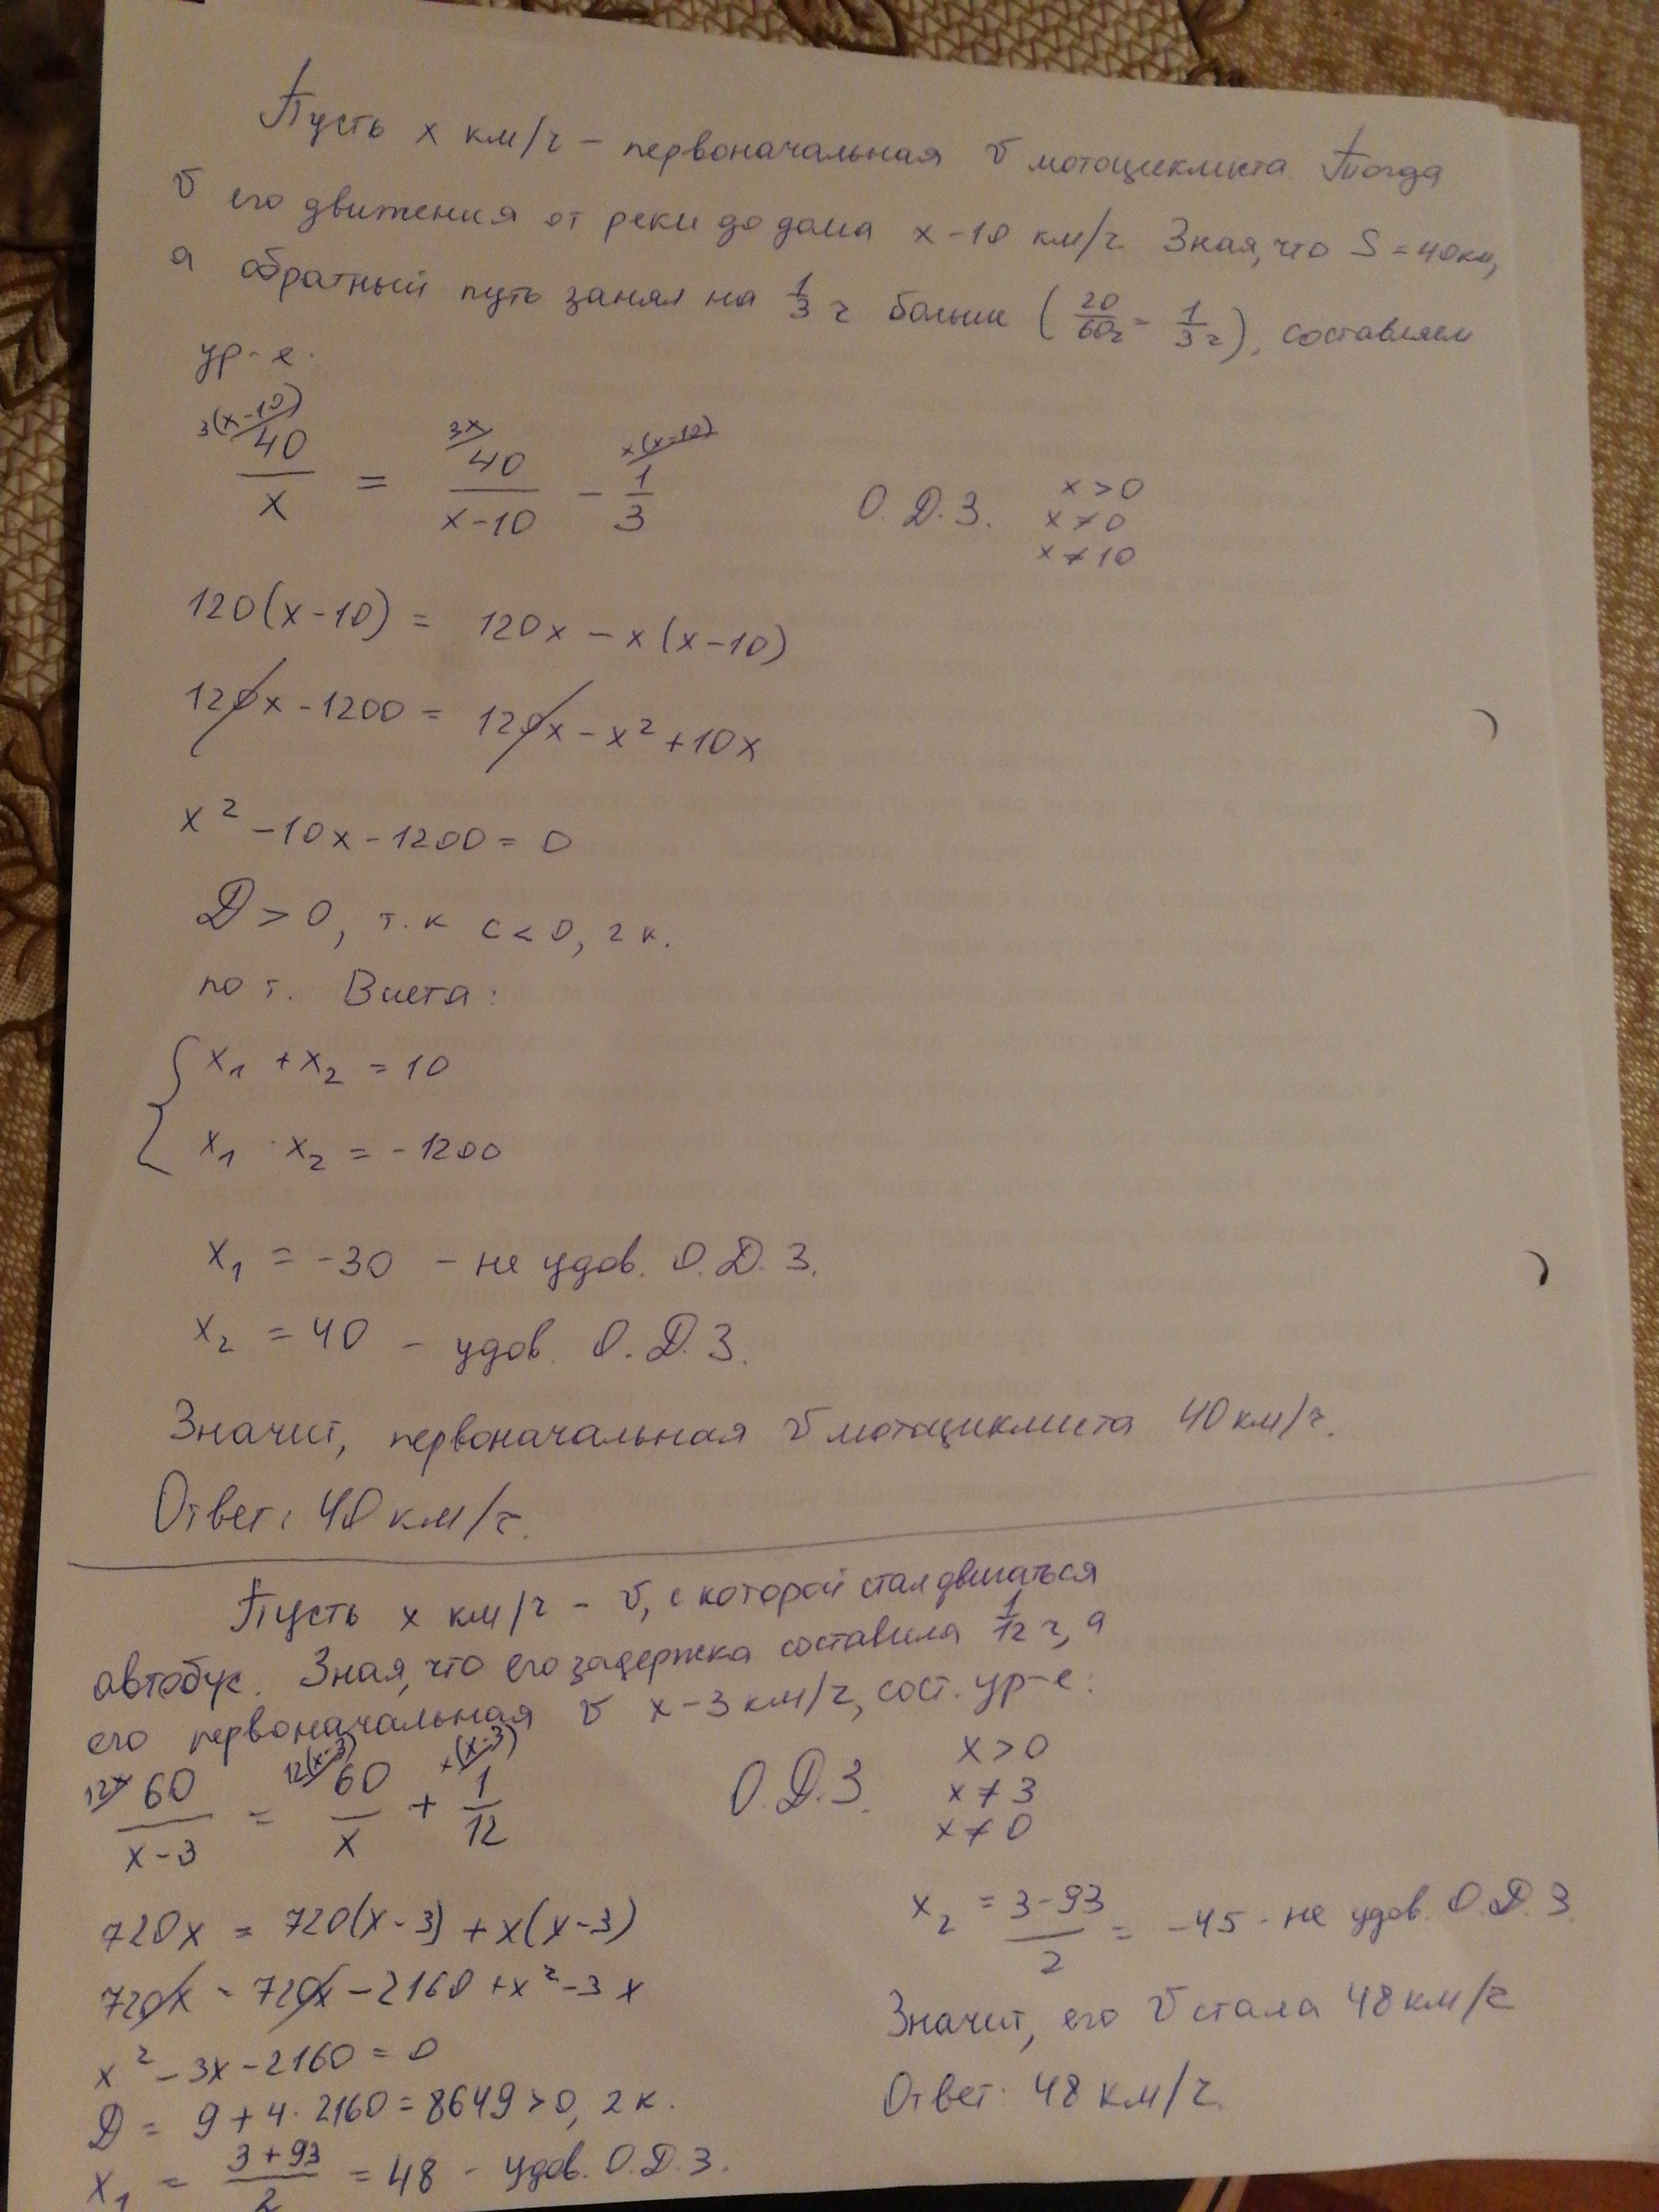 Пусть x км/ч – первоначальная v мотоциклиста. Тогда
v его движения от реки до дома x-10 км/ч. Зная, что S = 40км,
а обратный путь занял на 1/3 ч больше (20/60ч = 1/3 ч), составляем
ур-е.
3(x-10) 3x x(x-10)
40/x = 40/(x-10) - 1/3
О.Д.З. x > 0
x ≠ 0
x ≠ 10
120(x-10) = 120x - x(x-10)
120x - 1200 = 120x - x² + 10x
x² - 10x - 1200 = 0
D > 0, т.к c < 0, 2 к.
по т. Виета:
x₁ + x₂ = 10
x₁ · x₂ = -1200
x₁ = -30 - не удов. О.Д.З.
x₂ = 40 - удов. О.Д.З.
Значит, первоначальная v мотоциклиста 40 км/ч.
Ответ: 40 км/ч.
Пусть x км/ч - v, с которой стал двигаться
автобус. Зная, что его задержка составила 1/12 ч, а
его первоначальная v x-3 км/ч, сост. ур-е:
12x 12(x-3) x(x-3)
60/(x-3) = 60/x + 1/12
О.Д.З. x > 0
x ≠ 3
x ≠ 0
720x = 720(x-3) + x(x-3)
720x - 720x - 2160 + x² - 3x
x² - 3x - 2160 = 0
D = 9 + 4 · 2160 = 8649 > 0, 2 к.
x₁ = (3+93)/2 = 48 - удов. О.Д.З.
x₂ = (3-93)/2 = -45 - не удов. О.Д.З.
Значит, его v стала 48 км/ч
Ответ: 48 км/ч.